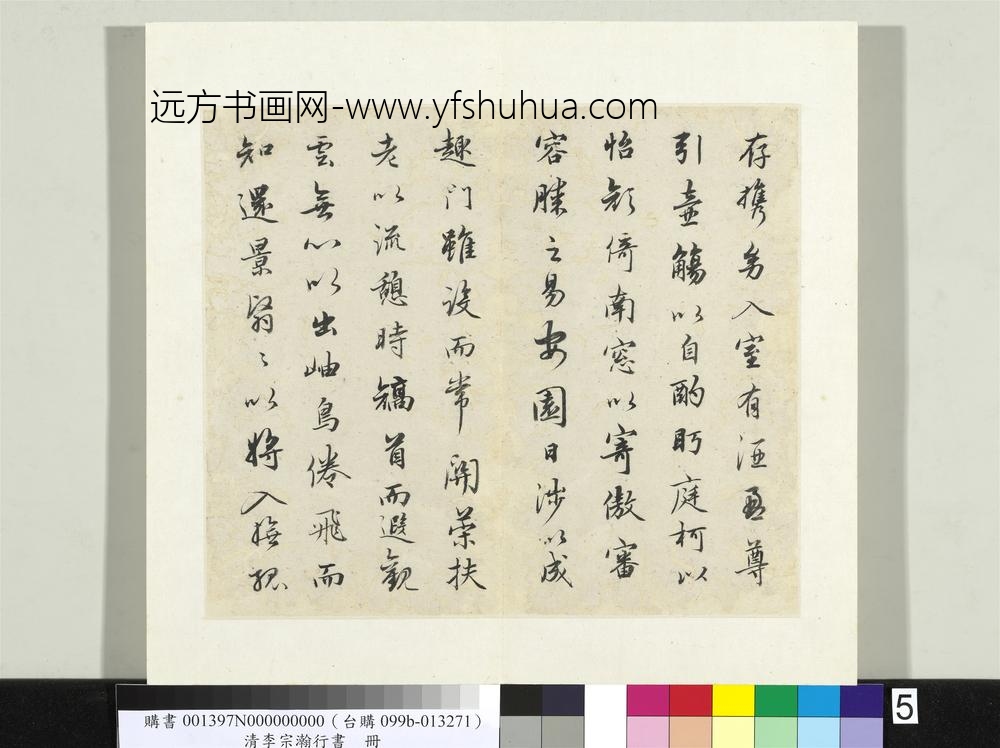 远方书画网-www.yfshuhua.com
存携幼入室有酒盈尊
引壺觴以自酌眄庭柯以
怡顏倚南窓以寄傲審
容膝之易安園日涉以成
趣門雖設而常關策扶
老以流憩時矯首而遐觀
雲無心以出岫鳥倦飛而
知還景翳〻以將入撫孤
購書 001397N000000000（台購 099b-013271）
清李宗瀚行書　冊
5